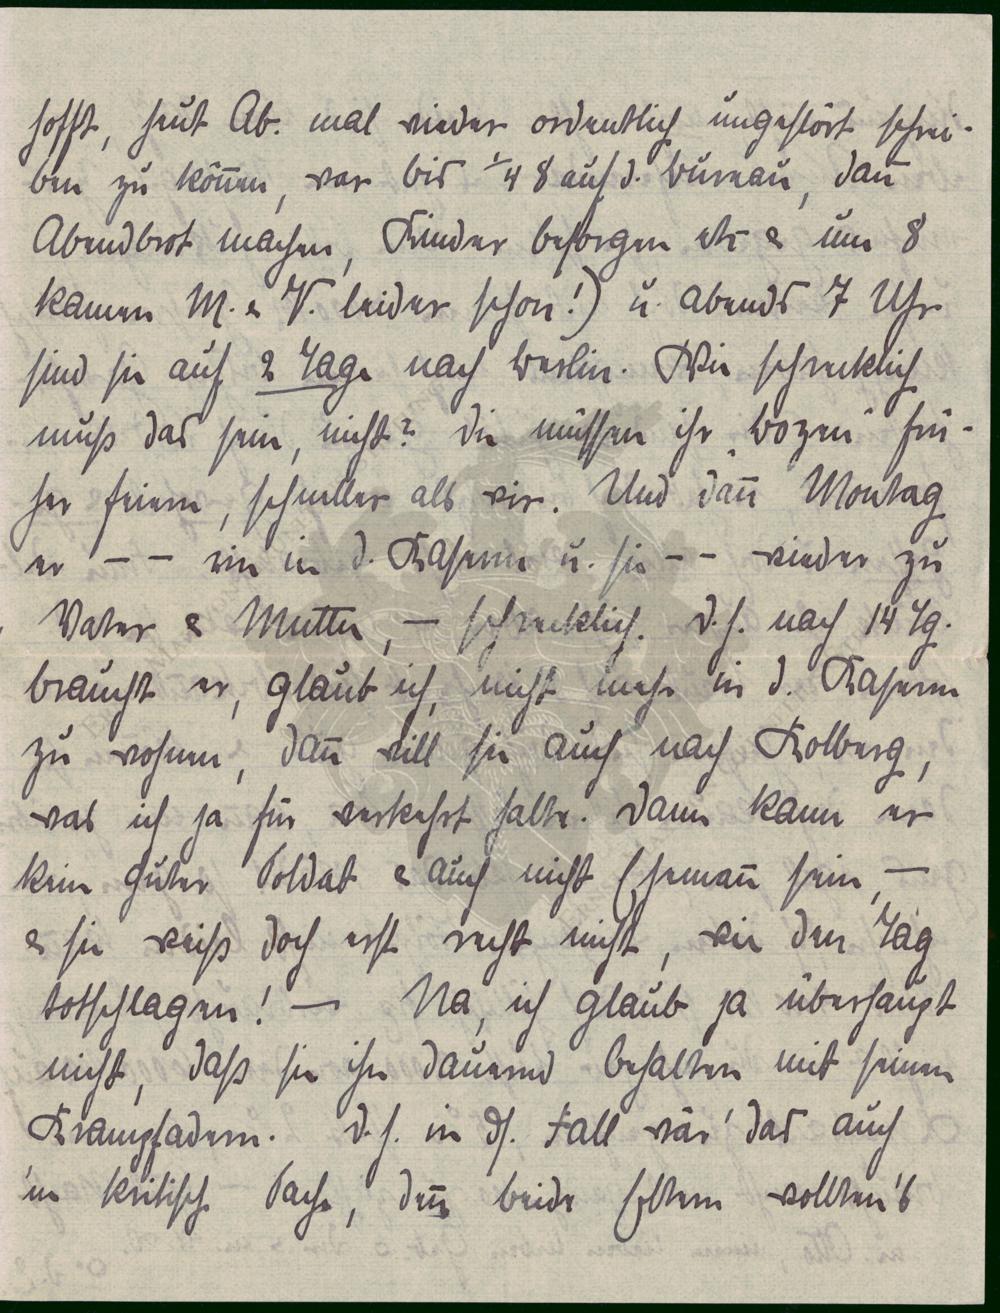 hofft, heut Ab. mal wieder ordentlich ungestört schrei-
ben zu können, war bis ¼ 8 auf d. Bureau, dann
Abendbrot machen, Kinder besorgen etc & um 8
kamen M. & V. leider schon!) u. abends 7 Uhr
sind sie auf 2 Tage nach Berlin. Wie schrecklich
muß das sein, nicht? Die müssen ihr "Bozen" frü-
her feiern, schneller als wir. Und dann Montag
er – – rin in d. Kaserne u. sie – – wieder zu
Vater & Mutter, – schrecklich. D. h. nach 14 Tg.
braucht er, glaub ich, nicht mehr in d. Kaserne
zu wohnen, dann will sie auch nach Kolberg,
was ich ja für verkehrt halte. Dann kann er
kein guter Soldat & auch nicht Ehemann sein, –
& sie weiß doch erst recht nicht, wie den Tag
totschlagen! – Na, ich glaub ja überhaupt
nicht, daß sie ihn dauernd behalten mit seinen
Krampfadern. D. h. in ds. Fall wär' das auch
'ne kritisch. Sache, denn beide Eltern wollten's